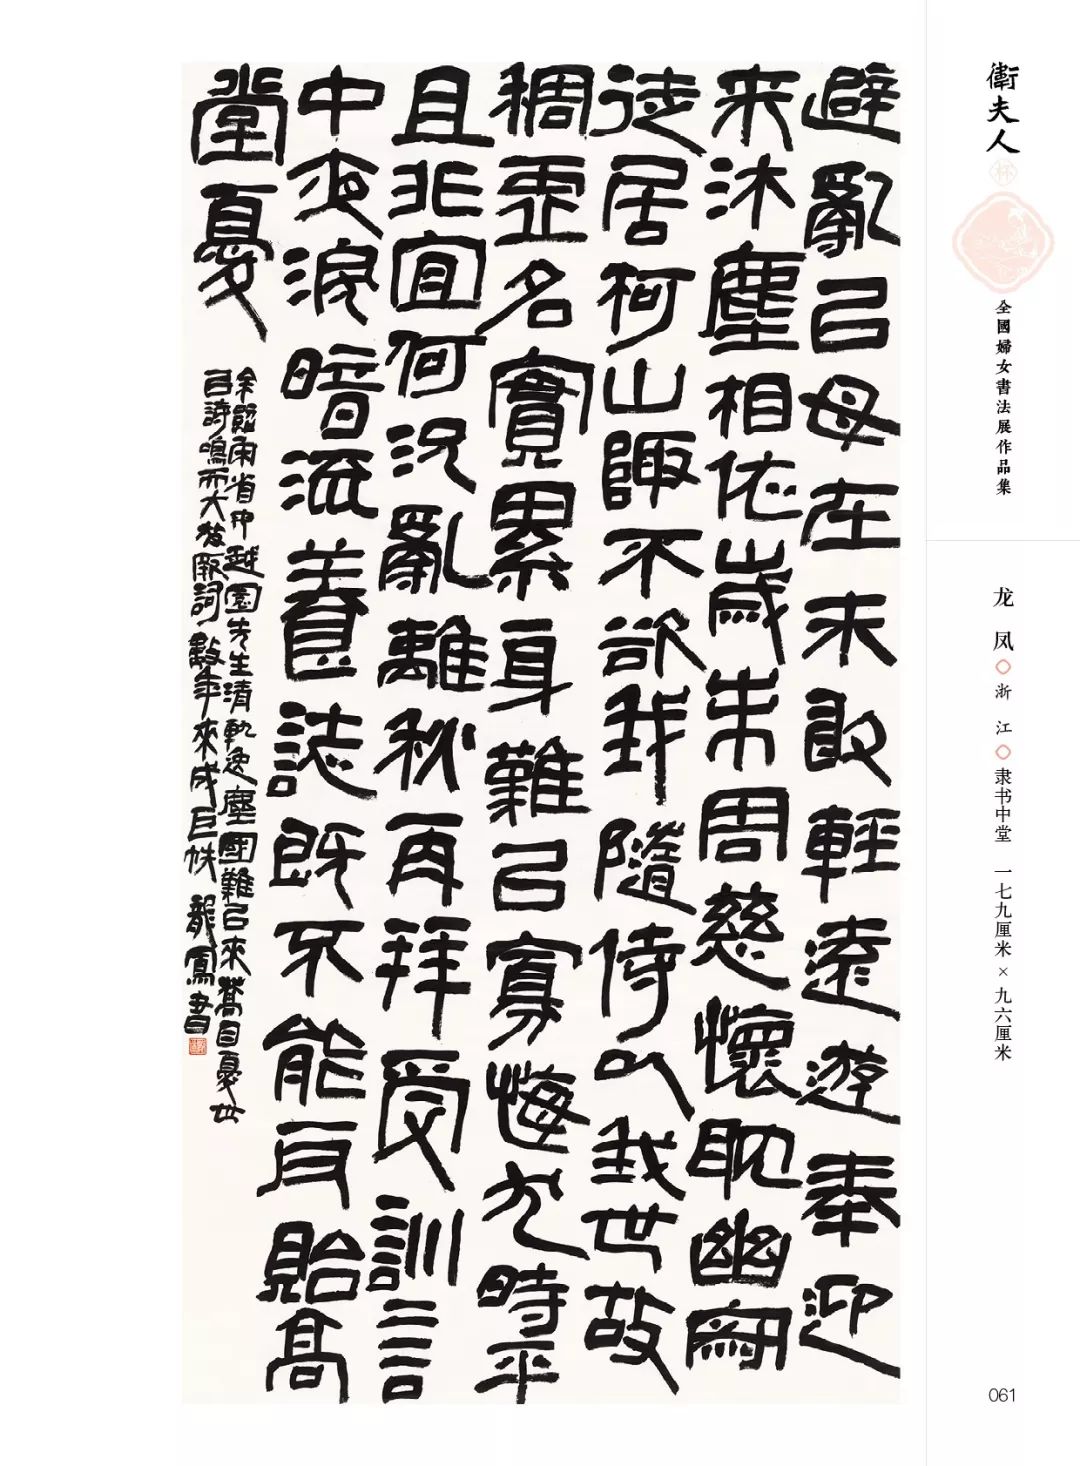 避亂已母在未敢輕遠遊奉迎
来沐塵相依歲未周慈懷耽幽寂
徙居柯山陬不欲我隨侍以我世故
稠虛名實累身難已寡悔尤時平
且非宜何況亂離秋再拜受訓言
中夜淚暗流養誌既不能反貽高
堂憂
余 越園先生清軌逸塵國難已來蒿目憂世
以詩鳴而大放厥詞數年來成巨帙 龍鳳書
衛夫人
杯
全國婦女書法展作品集
龙凤 浙江 隶书中堂 一七九厘米×九六厘米
061